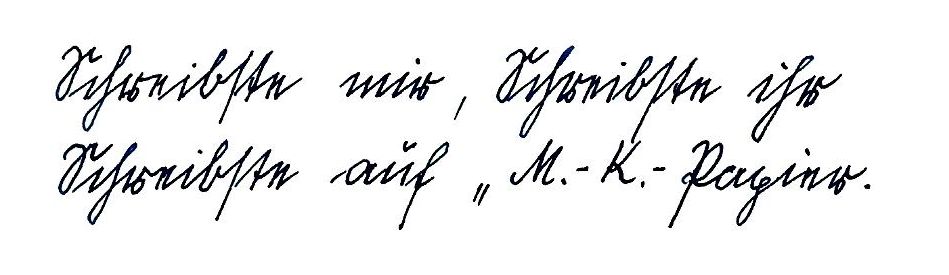 Schreibste mir, Schreibste ihr
Schreibste auf „M.-K.-Papier.